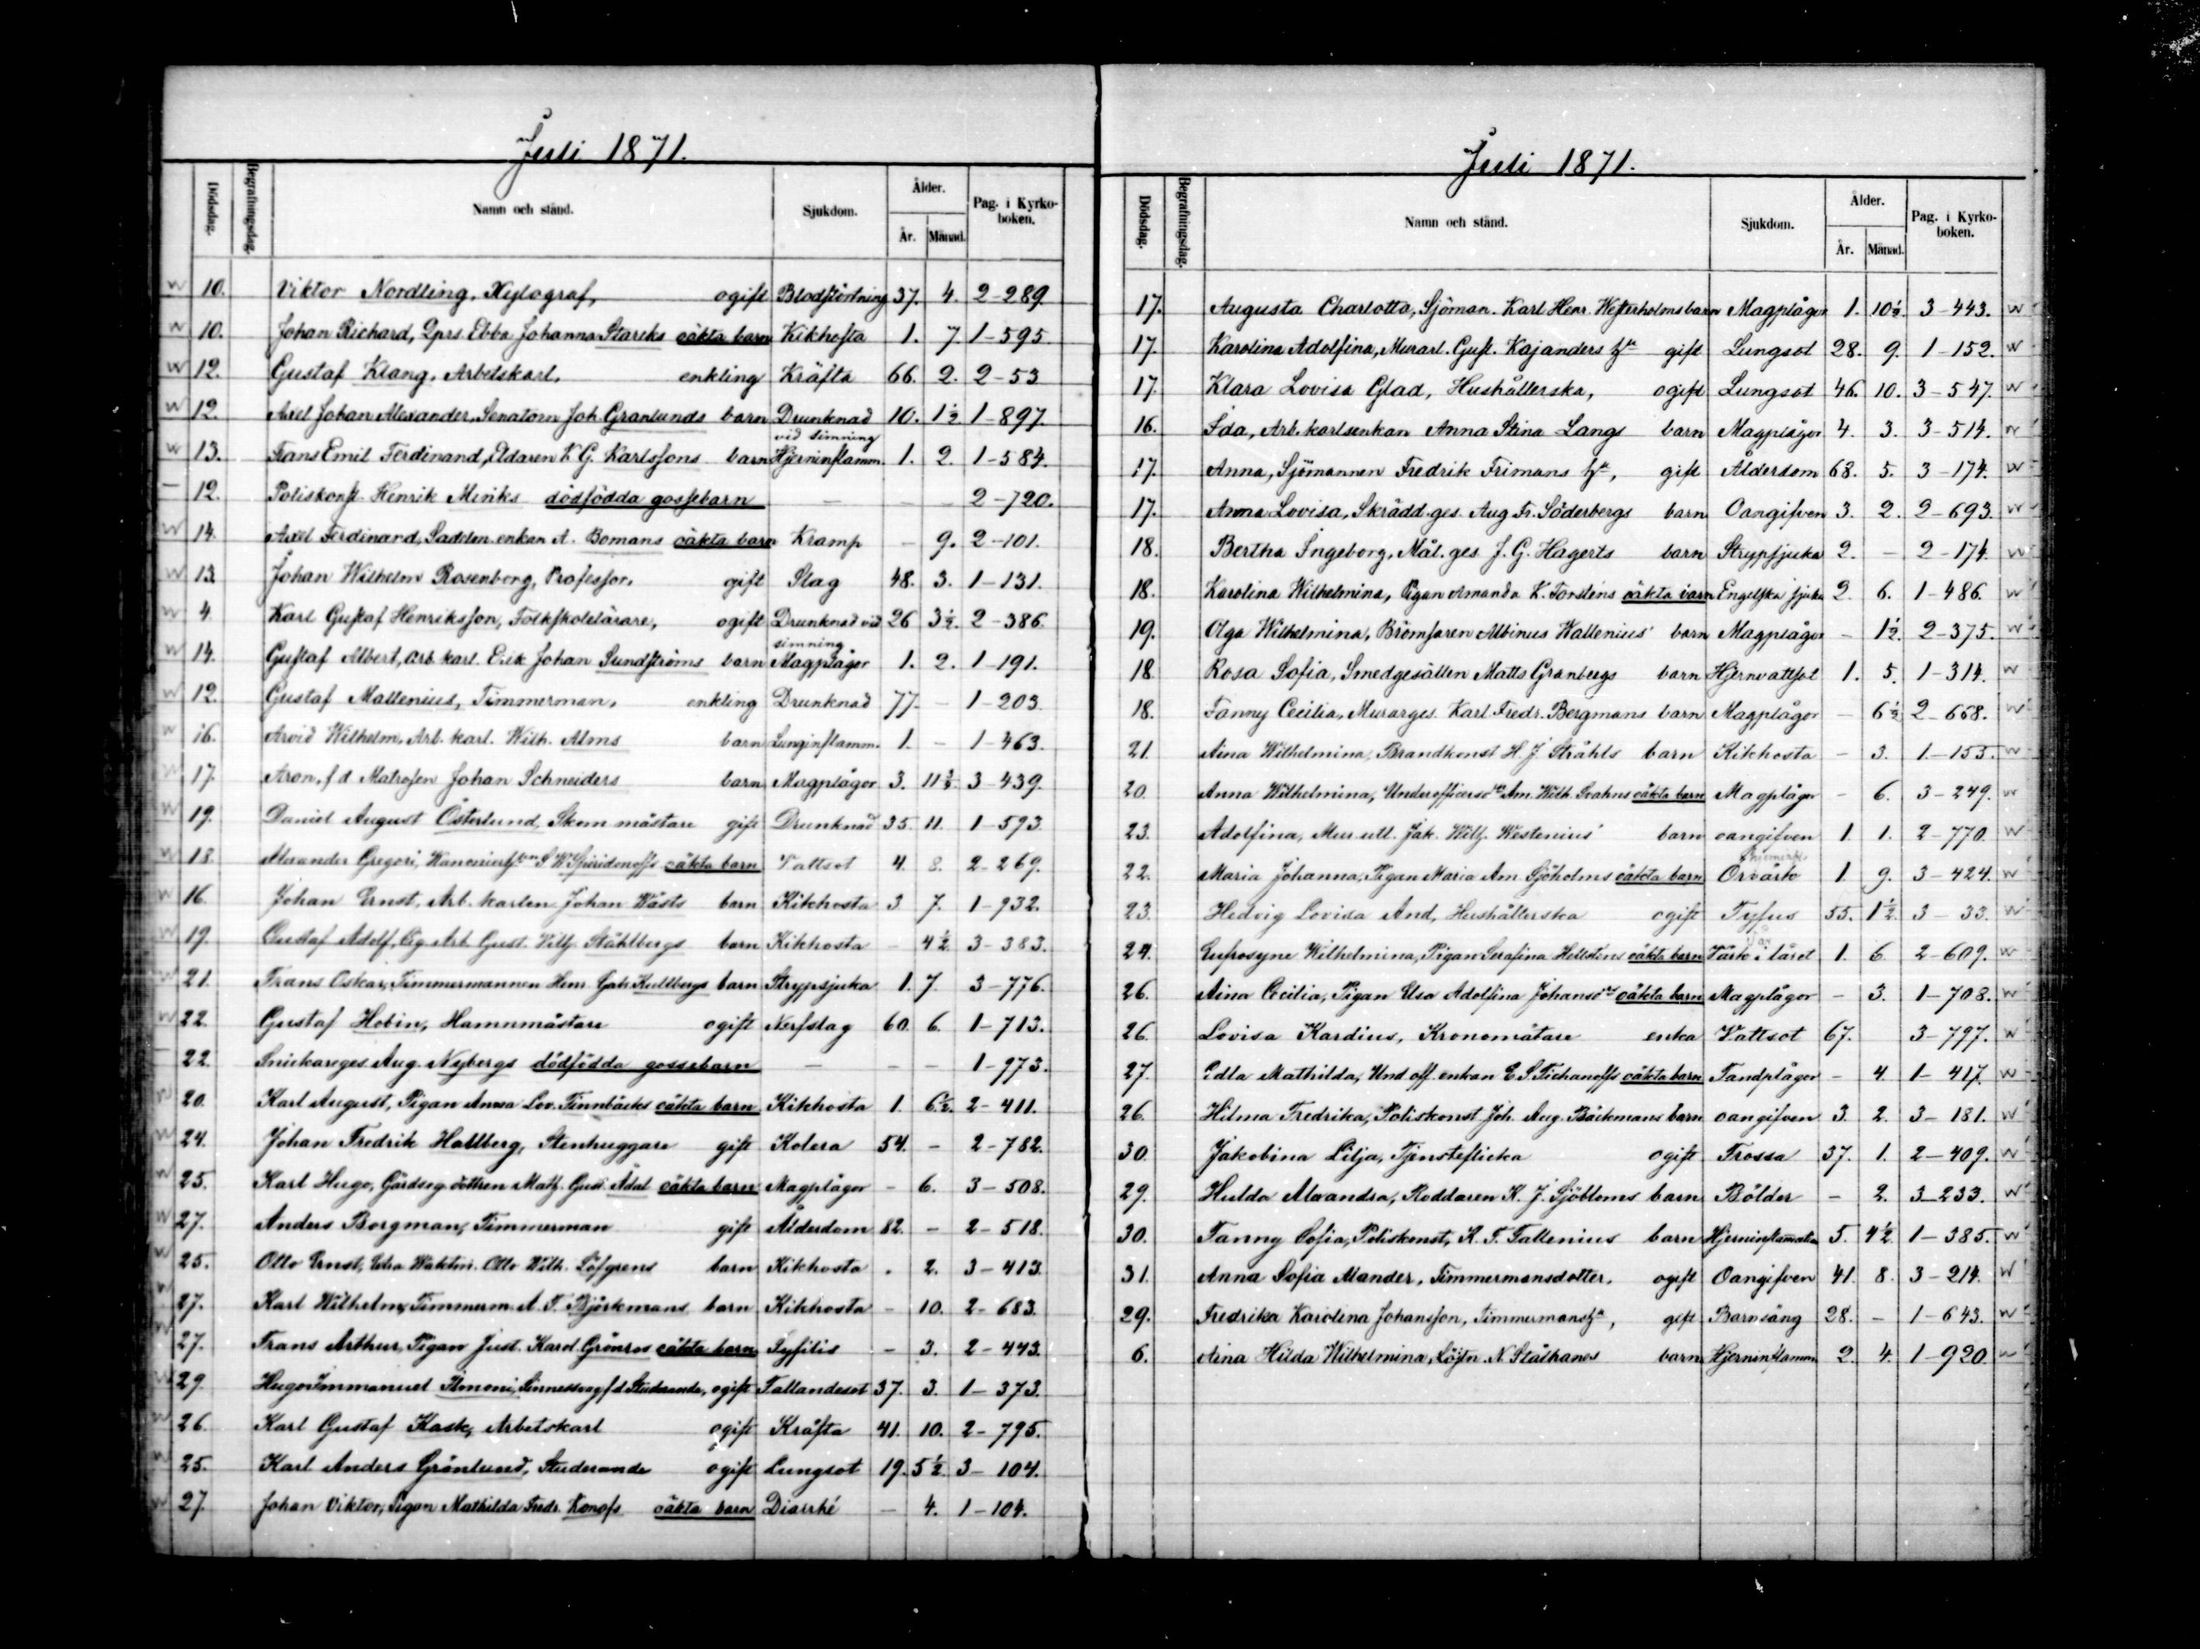 Juli 1871.
Dödsdag. Begrafningsdag. Namn och stånd. Sjukdom. Ålder. År. Månad. Pag. i Kyrkoboken.
10. Viktor Nordling, Xylograf, ogift Blodstörtning 37. 4. 2-289
10. Johan Richard, Ebba Johanna Starcks oäkta barn Kikhosta 1. 7. 1-595
12. Gustaf Klang, Arbetskarl, enkling Kräfta 66. 2. 2-53
12. Axel Johan Alexander, Senatorn Joh. Granlunds barn Drunknad vid simning 10. 1½ 1-897.
13. Frans Emil Ferdinand, Eldaren K. G. Karlssons barn Hjerninflamm. 1. 2. 1-584.
12. Poliskonst. Henrik Meriks dödfödda gossebarn — — — 2-720.
14. Axel Ferdinand, Sadelm. enkan A. Bomans oäkta barn Kramp — 9. 2-101.
13. Johan Wilhelm Rosenborg, Professor, gift Slag 48. 3. 1-131.
4. Karl Gustaf Henriksson, Folkskolelärare, ogift Drunknad vid simning 26 3½. 2-386.
14. Gustaf Albert, arb. karl. Erik Johan Sundströms barn Magplågor 1. 2. 1-191.
12. Gustaf Mallenius, Timmerman, enkling Drunknad 77. — 1-203.
16. Arvid Wilhelm, Arb. karl. Wilh. Alms barn Lunginflamm. 1. — 1-463.
17. Aron, f d Matrosen Johan Schneiders barn Magplågor 3. 11½. 3-439.
19. Daniel August Österlund, Skom mästare gift Drunknad 35. 11. 1-593
18. Alexander Gregori, S. W. Spiridonoffs oäkta barn Vattsot 4. 8. 2-269.
16. Johan Ernst, Arb. karlen Johan Wästs barn Kikhosta 3 7. 1-932.
19. Gustaf Adolf, Arb. Gust. Vilh. Ståhlbergs barn Kikhosta — 4½ 3-383.
21. Frans Oskar, Timmermannen Henr. Gab. Kullbergs barn Strypsjuka 1. 7. 3-776.
22. Gustaf Hobin, Hamnmästare ogift Nerfslag 60. 6. 1-713.
22. Snickareges. Aug. Nybergs dödfödda gossebarn — — — 1-973.
20. Karl August, Pigan Anna Lov. Finnbäcks oäkta barn Kikhosta 1. 6½. 2-411.
24. Johan Fredrik Hallberg, Stenhuggare gift Kolera 54. — 2-782.
25. Karl Hugo, Gårdseg. dottren Math. Gust. Ådal oäkta barn Magplågor — 6. 3-508.
27. Anders Borgman, Timmerman gift Ålderdom 82. — 2-518.
25. Otto Ernst, Extra Waktm. Otto Wilh. Löfgrens barn Kikhosta . 2. 3-413.
27. Karl Wilhelm, Timmerm. A. F. Björkmans barn Kikhosta — 10. 2-683.
27. Frans Arthur, Pigan Just. Karol. Grönros oäkta barn Syfilis — 3. 2-443.
29. Hugo Immanuel Ilmoni, Sinnessvag f d Studerande, ogift Fallandesot 37. 3. 1-373.
26. Karl Gustaf Kask, Arbetskarl ogift Kräfta 41. 10. 2-795.
25. Karl Anders Grönlund, Studerande ogift Lungsot 19. 5½ 3-104.
27. Johan Viktor, Pigan Mathilda Fredr. Konofs oäkta barn Diarrhé — 4. 1-104.
Juli 1871.
Dödsdag. Begrafningsdag. Namn och stånd. Sjukdom. Ålder. År. Månad. Pag. i Kyrkoboken.
17. Augusta Charlotta, Sjöman. Karl Henr. Westerholms barn Magplågor 1. 10½. 3-443.
17. Karolina Adolfina, Murarl. Gust. Kajanders hu gift Lungsot 28. 9. 1-152.
17. Klara Lovisa Glad, Hushållerska, ogift Lungsot 46. 10. 3-547.
16. Ida, Arb. karlsenkan Anna Stina Langs barn Magplågor 4. 3. 3-514.
17. Anna, Sjömannen Fredrik Frimans hu, gift Ålderdom 68. 5. 3-174.
17. Anna Lovisa, Skrädd. ges. Aug. Fr. Söderbergs barn Oangifven 3. 2. 2-693.
18. Bertha Ingeborg, Mål. ges. J. G. Hagerts barn Strypsjuka 2. — 2-174.
18. Karolina Wilhelmina, Pigan Amanda K. Forsténs oäkta barn Engelska sjukan 2. 6. 1-486.
19. Olga Wilhelmina, Bromsaren Albinus Wallenius' barn Magplågor — 1½. 2-375.
18. Rosa Sofia, Smedgesällen Matts Granbergs barn Hjernvattsot 1. 5. 1-314.
18. Fanny Cecilia, Murarges. Karl Fredr. Bergmans barn Magplågor — 6½ 2-658.
21. Aina Wilhelmina, Brandkonst H. J. Stråhls barn Kikhosta — 3. 1-155.
20. Anna Wilhelmina, Underofficersd. Am. Wilh. Svahns oäkta barn Magplågor — 6. 3-249.
23. Adolfina, Mur. utl. Jak. Wilh. Westenius' barn oangifven 1. 1. 2-770.
22. Maria Johanna, Pigan Maria Am. Sjöholms oäkta barn 1. 9. 3-424.
23. Hedvig Lovisa And, Hushållerska ogift Tyfus 55. 1½. 3-33.
24. Eufrosyne Wilhelmina, Pigan Serafina Hellsténs oäkta barn Värk i låret 1. 6. 2-609.
26. Aina Cecilia, Pigan Elsa Adolfina Johansd. oäkta barn Magplågor — 3. 1-708.
26. Lovisa Kardius, Kronomätare enka Vattsot 67. 3-797.
27. Edla Mathilda, Und off. enkan E. S. Tichanoffs oäkta barn Tandplågor — 4. 1-417.
26. Hilma Fredrika, Poliskonst. Joh. Aug. Bäckmans barn oangifven 3. 2. 3-181.
30. Jakobina Lilja, Tjensteflicka ogift Frossa 37. 1. 2-409.
29. Hulda Alexandra, Roddaren K. J. Sjöbloms barn Bölder — 2. 3-233.
30. Fanny Sofia, Poliskonst. K. F. Fallenius barn Hjerninflamation 5. 4½ 1-385.
31. Anna Sofia Alander, Timmermansdotter, ogift Oangifven 41. 8. 3-214.
29. Fredrika Karolina Johansson, Timmermanshu, gift Barnsäng 28. — 1-643.
6. Aina Hilda Wilhelmina, Löjtn. N. Stålhanes barn Hjerninflamm 2. 4. 1-920.